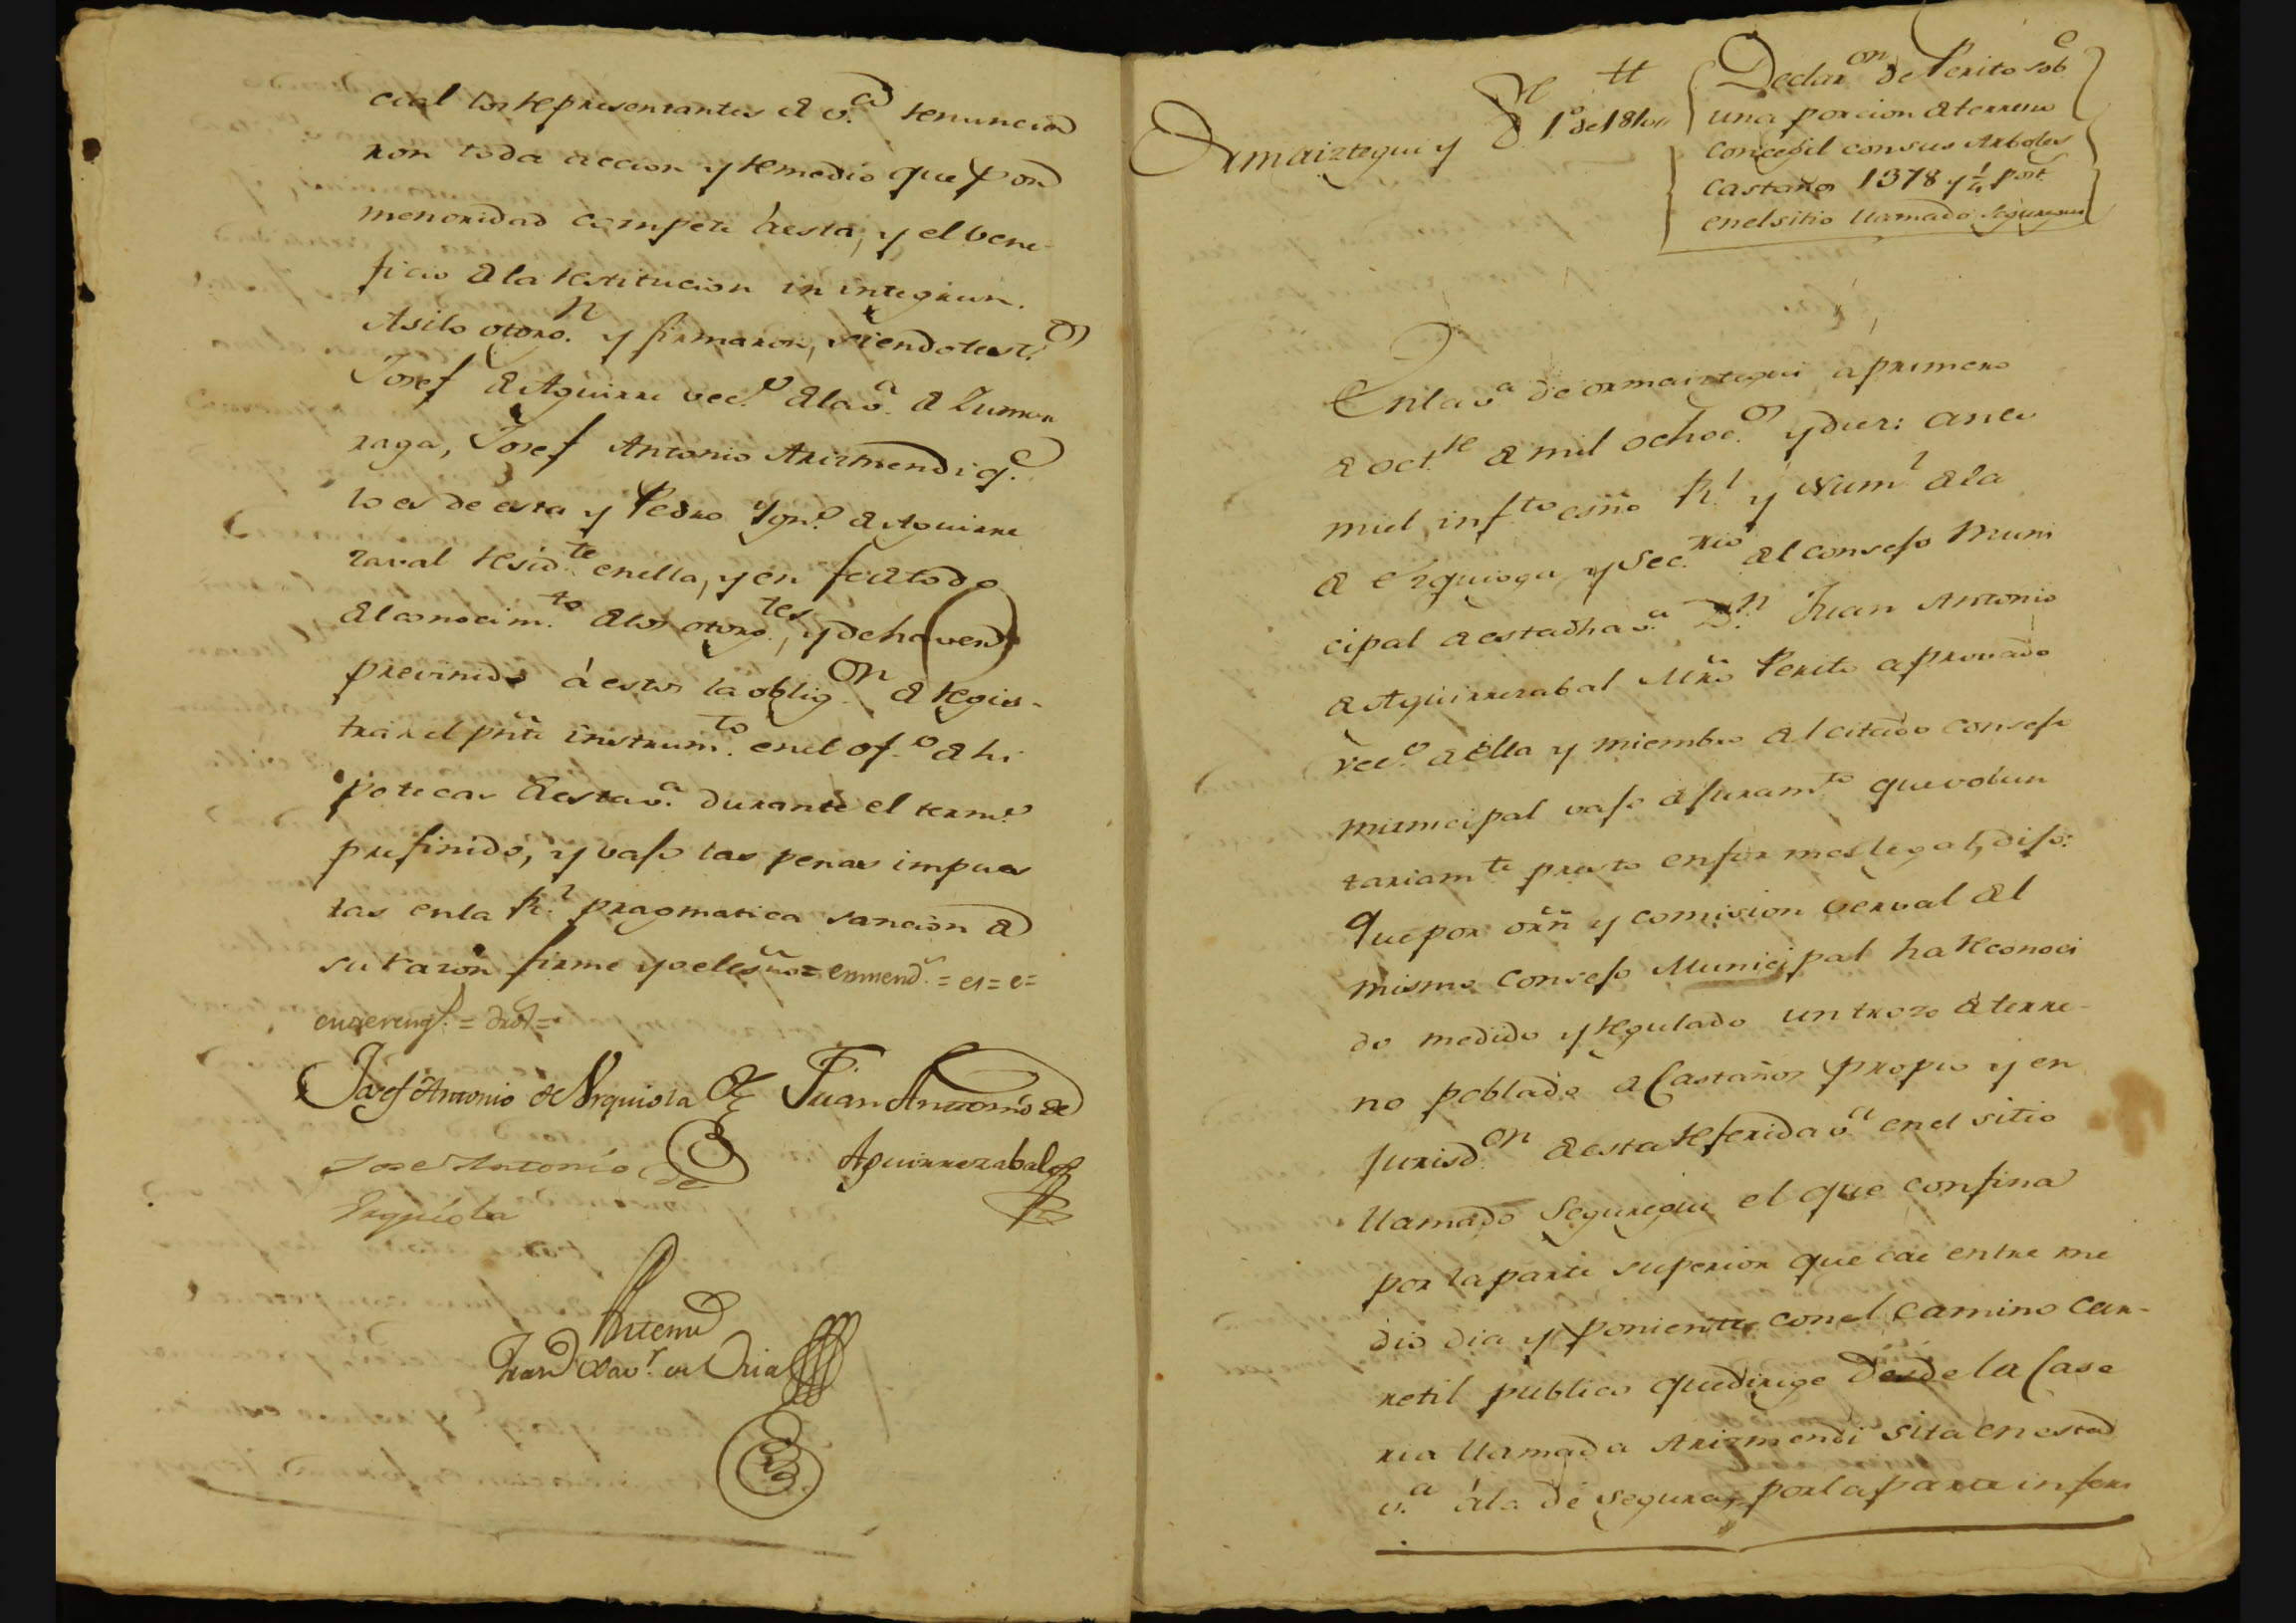 cial los representantes de v.ª renuncia
ron toda accion y remedio que por
menoridad compete á esta, y el bene-
ficio de la restitucion in integrum.
Asi lo otorg.n y firmaron, siendo test.os
Josef de Aguirre vec.o de la v.ª de Zumar
raga, Josef Antonio Arizmendi q.e
lo es de esta y Pedro Ygn.o de Aguirre
zaval resid.te en ella, y en fe de todo
del conocim.to de los otorg.tes, y de haverse
prevenido á estos la oblig.on de regis-
trar el pñte instrum.to en el of.o de hi
potecas de esta v.ª durante el term.o
prefinido, y vajo las penas impues
tas en la R.l pragmatica sancion de
su razon firme yo el esño = enmend.o = es = e =
entrereng.s =
Josef Antonio de Urquiola Juan Antonio de
Jose Antonio de Aguirrezabal
Urquiola
Antemi
Fran.co Xav.r de Oria
Ormaiztegui y 8.re 1.o de 1810
Declar.on de Perito sob.e
una porcion de terreno
concegil con sus Arboles
Castaños 1378 y ¼ post.
en el sitio llamado Seguregui
En la v.ª de ormaiztegui a primero
de oct.re de mil ochoc.os y diez: ante
mi el infr.to esño R.l y Num.l de la
de Ezquioga y Sec.rio del consejo Muni
cipal de esta dha v.ª D.n Juan Antonio
de Aguirrezabal Mrõ Perito aprovado
vec.o de ella y miembro del citado consejo
municipal vajo de juram.to que volun
tariam.te presto en forma legal, dijo:
Que por orñ y comision verval del
mismo Consejo Municipal ha reconoci
do medido y regulado un trozo de terre-
no poblado de Castaños propio y en
jurisd.on de esta referida v.ª en el sitio
llamado Seguregui el que confina
por la parte superior que cae entre me
dio dia y poniente con el camino car-
retil publico que dirige desde la Case
ria llamada Arizmendi sita en esta d
v.ª á la de Segura, por la parte inferi